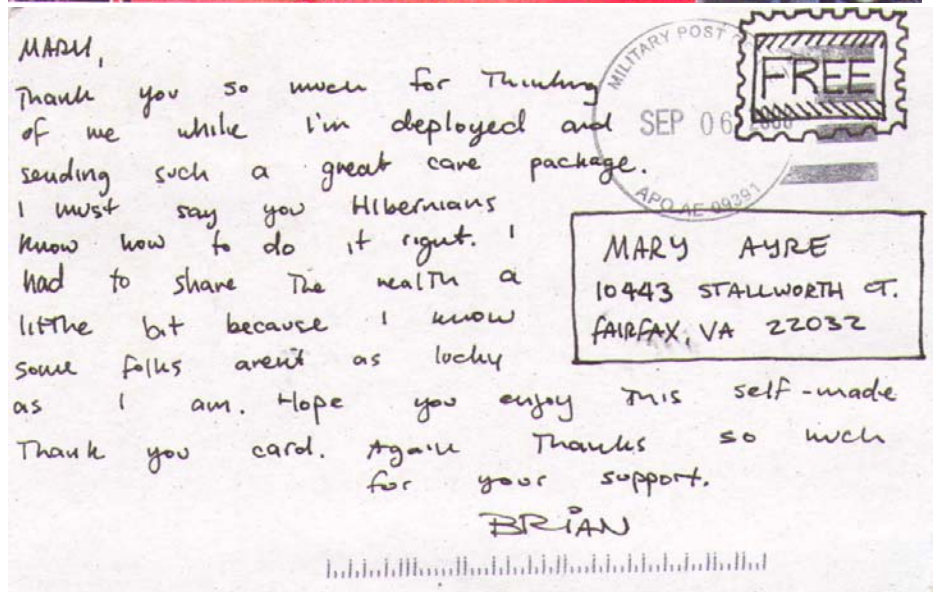 MARY,
Thank you so much for Thinking
of me while I'm deployed and
sending such a great care package.
I must say you Hibernians
know how to do it right. I
had to share The wealth a
litthe bit because I know
some folks aren't as lucky
as I am. Hope you enjoy This self-made
Thank you card. Again Thanks so much
for your support.
BRIAN
MILITARY POST
SEP 06
APO AE 09391
FREE
MARY AYRE
10443 STALLWORTH CT.
FAIRFAX, VA 22032